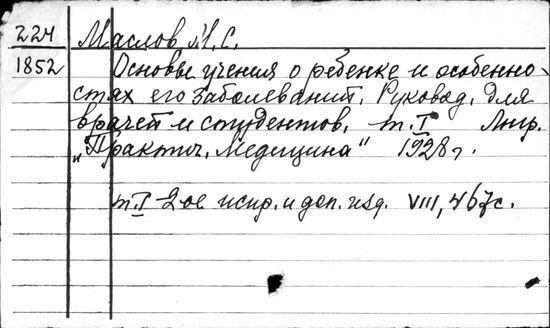 224
1852
Маслов М.С.
Основы учения о ребенке и особенно-
стях его заболеваний. Руковод. для
врачей и студентов. т. I Лнгр.
„Практич. медицина" 1928 г.
т. I 2-ое испр. и доп. изд. VIII, 467 с.